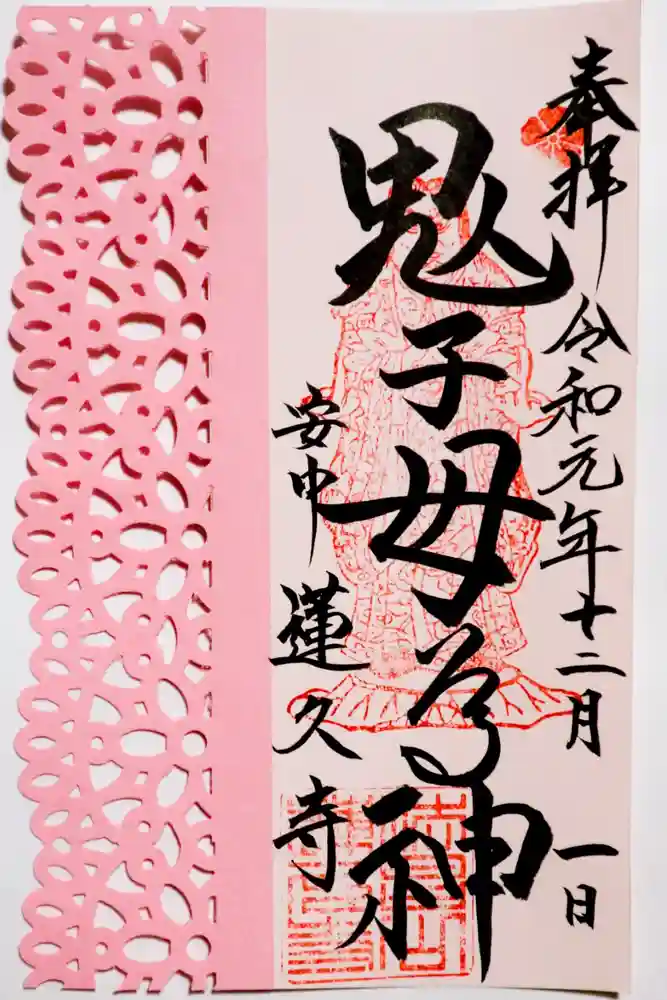 奉拝 令和元年十二月 一日
鬼子母尊神
安中 蓮久寺